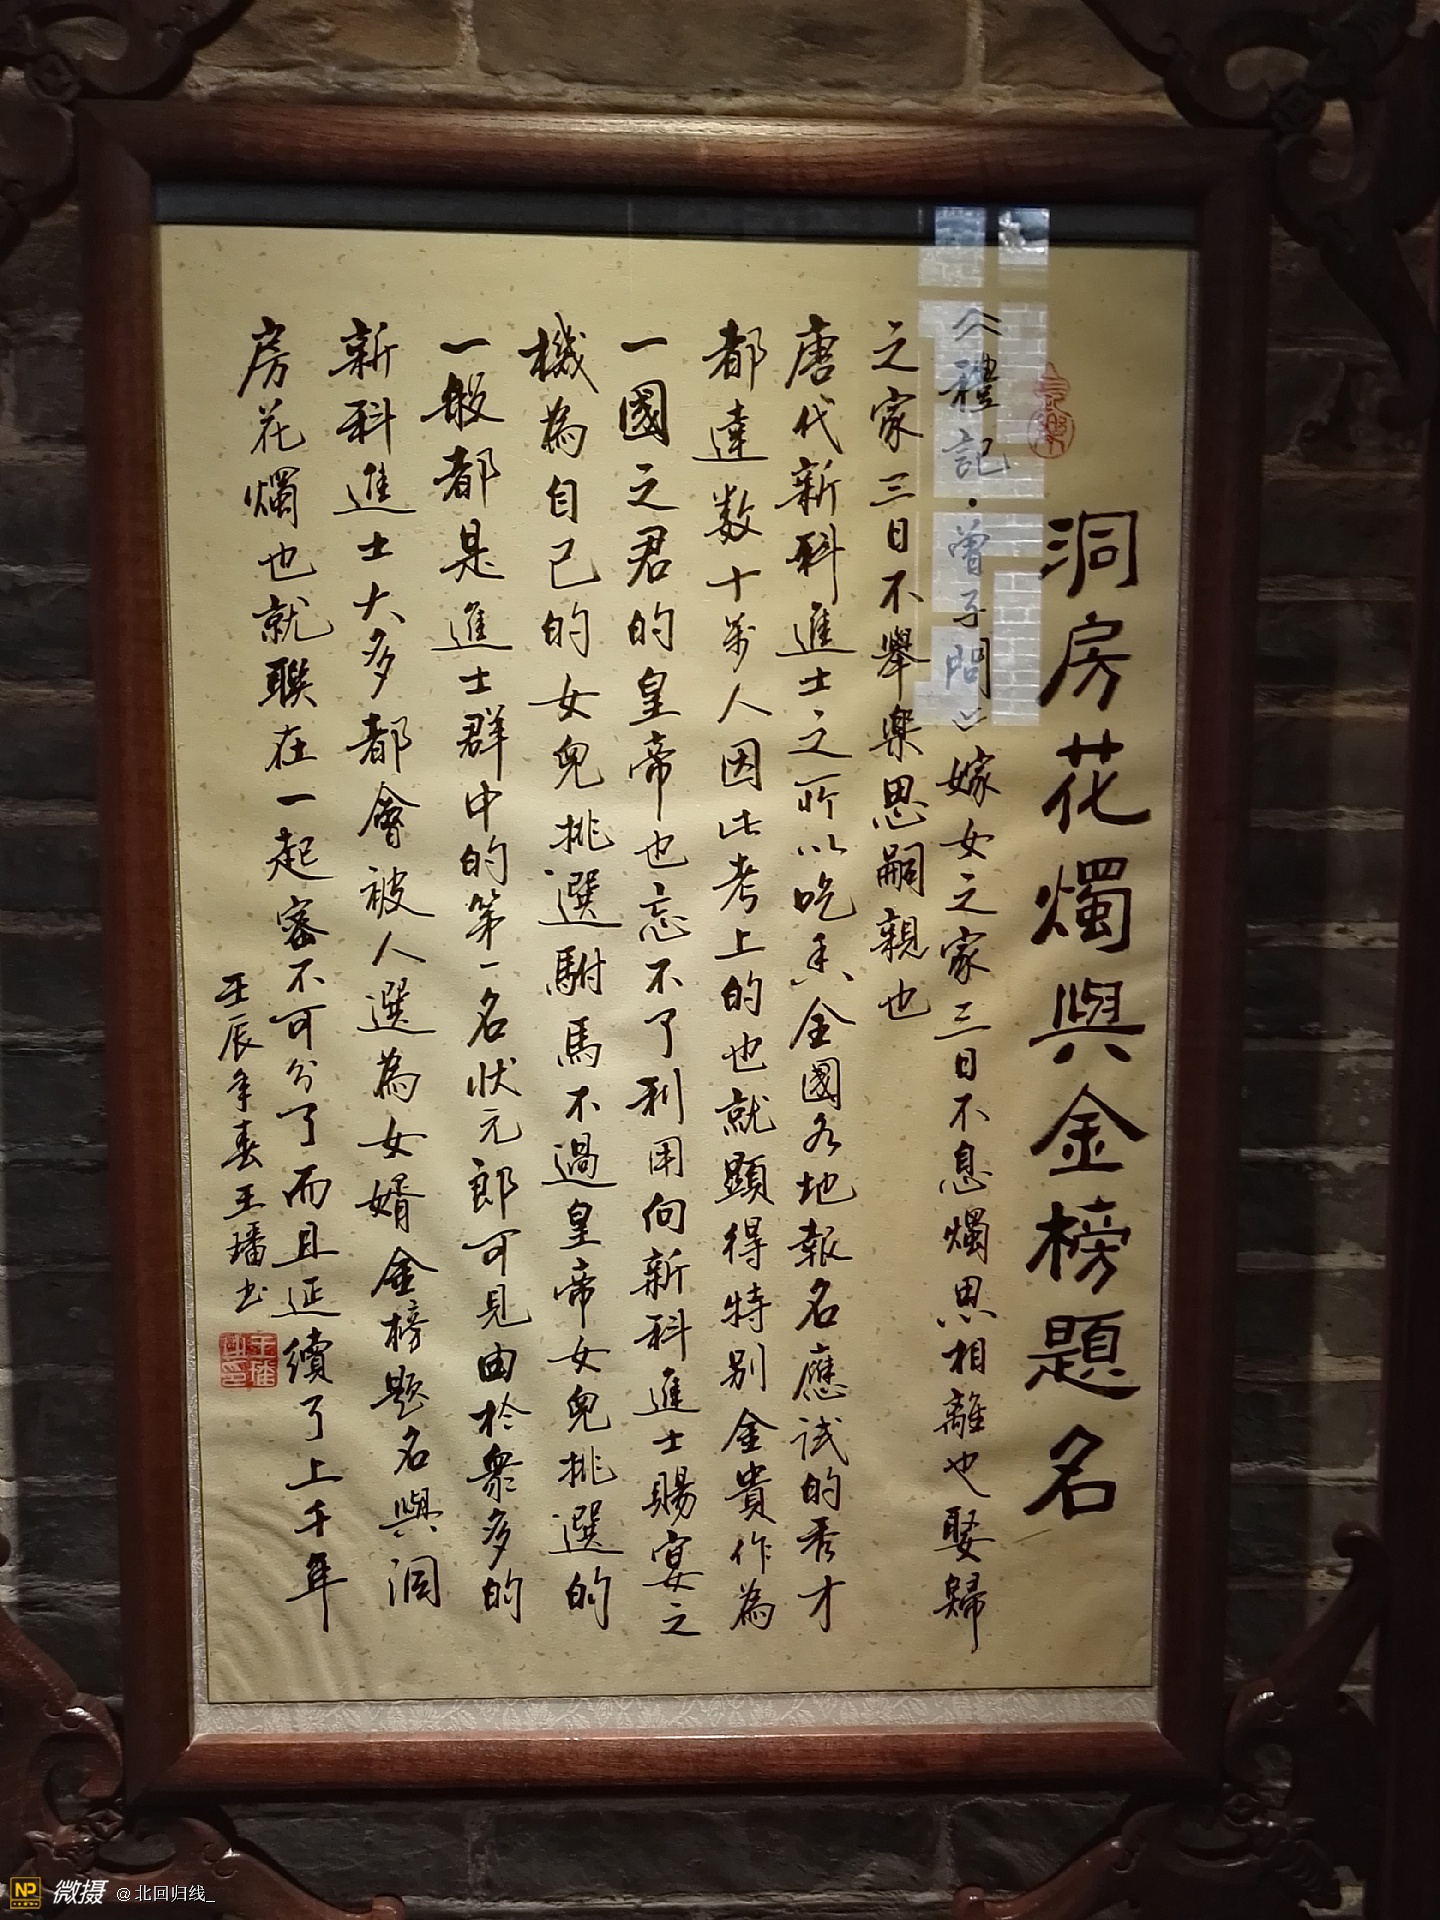 洞房花燭與金榜題名
《禮記·曾子問》嫁女之家三日不息燭思相離也娶歸
之家三日不舉樂思嗣親也
唐代新科進士之所以吃香全國各地報名應試的秀才
都達数十萬人因此考上的也就顯得特别金貴作為
一國之君的皇帝也忘不了利用向新科進士賜宴之
機為自己的女兒挑選駙馬不過皇帝女兒挑選的
一般都是進士群中的第一名状元郎可見由於衆多的
新科進士大多都會被人選為女婿金榜题名與洞
房花燭也就聯在一起密不可分了而且延續了上千年
壬辰年春王璠书
微摄 @北回归线_
NP